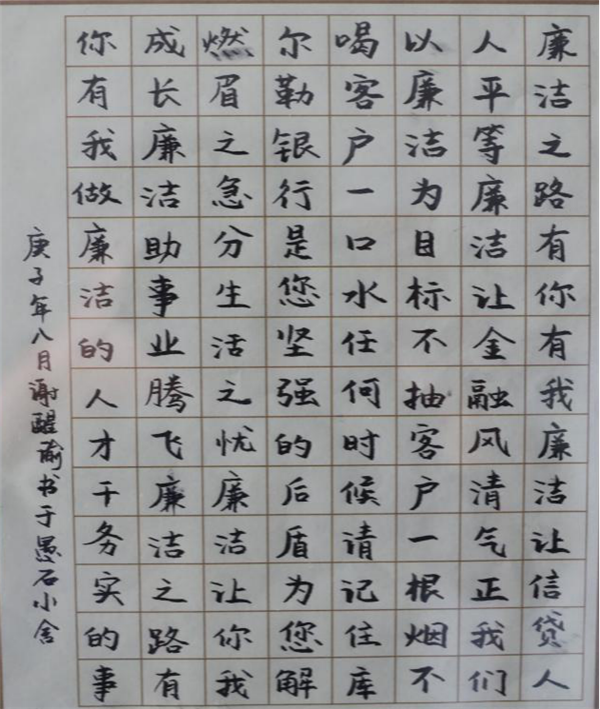 廉洁之路有你有我廉洁让信贷人
人平等廉洁让金融风清气正我们
以廉洁为目标不抽客户一根烟不
喝客户一口水任何时候请记住库
尔勒银行是您坚强的后盾为您解
燃眉之急分生活之忧廉洁让你我
成长廉洁助事业腾飞廉洁之路有
你有我做廉洁的人才干务实的事
庚子年八月谢醒瑜书于愚石小舍